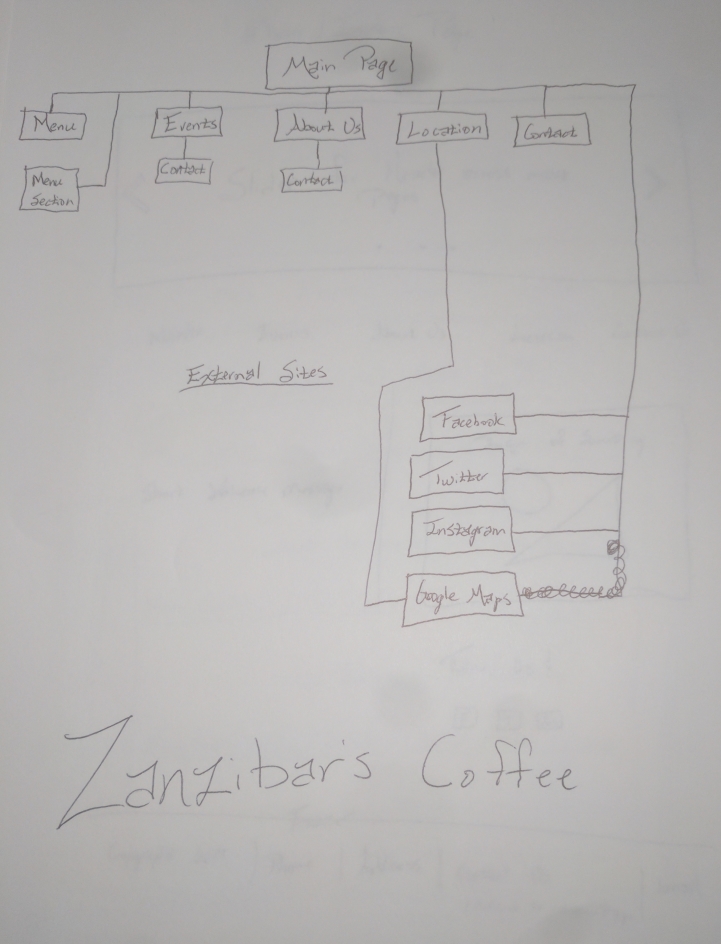 Main Page
Menu
Events
About Us
Location
Contact
Menu
Section
Contact
Contact
External Sites
Facebook
Twitter
Instagram
Google Maps
Zanzibar's Coffee